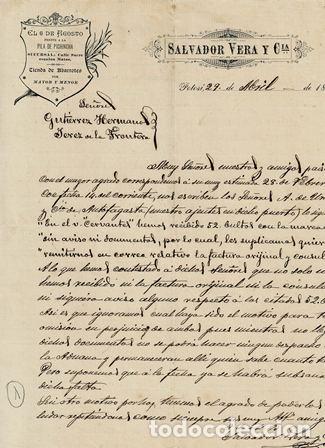 EL 6 DE AGOSTO
FRENTE A LA
PILA DE PICHINCHA
SUCURSAL: Calle Sucre
Tienda de Abarrotes
POR
MAYOR Y MENOR
SALVADOR VERA Y Cia
Potosí, 29 de Abril de 18
Señores
Gutiérrez Hermanos
Jerez de la Frontera
Muy Señores nuestros y amigos:
Con el mayor agrado correspondemos a su muy estimada 28 de Febrero
Con fecha 14 del corriente, nos escriben los Señores A. de
y Cio de Antofagasta (nuestros agentes en dicho puerto) lo
"En el v. "Cervantes" hemos recibido 52. bultos con la marca
"sin aviso ni documentos, por lo cual, les suplicamos
"remitirnos en correo relativo la factura original y
A lo que hemos contestado a dichos Señores que no solo
hemos recibido ni la factura original ni la
ni siquiera aviso alguno respecto a los citados 52.
Así es que ignoramos cual haya sido el motivo para
omisión en perjuicio de ambos, pues mientras no
dichos documentos no se podrá hacer ningun despacho
la Aduana y permanecerán allí quien sabe cuanto
Pero suponemos que a la fecha ya se habrá
dicha falta.
Sin otro motivo por hoy, tenemos el agrado de
ludar repitiéndonos como siempre
todocoleccion